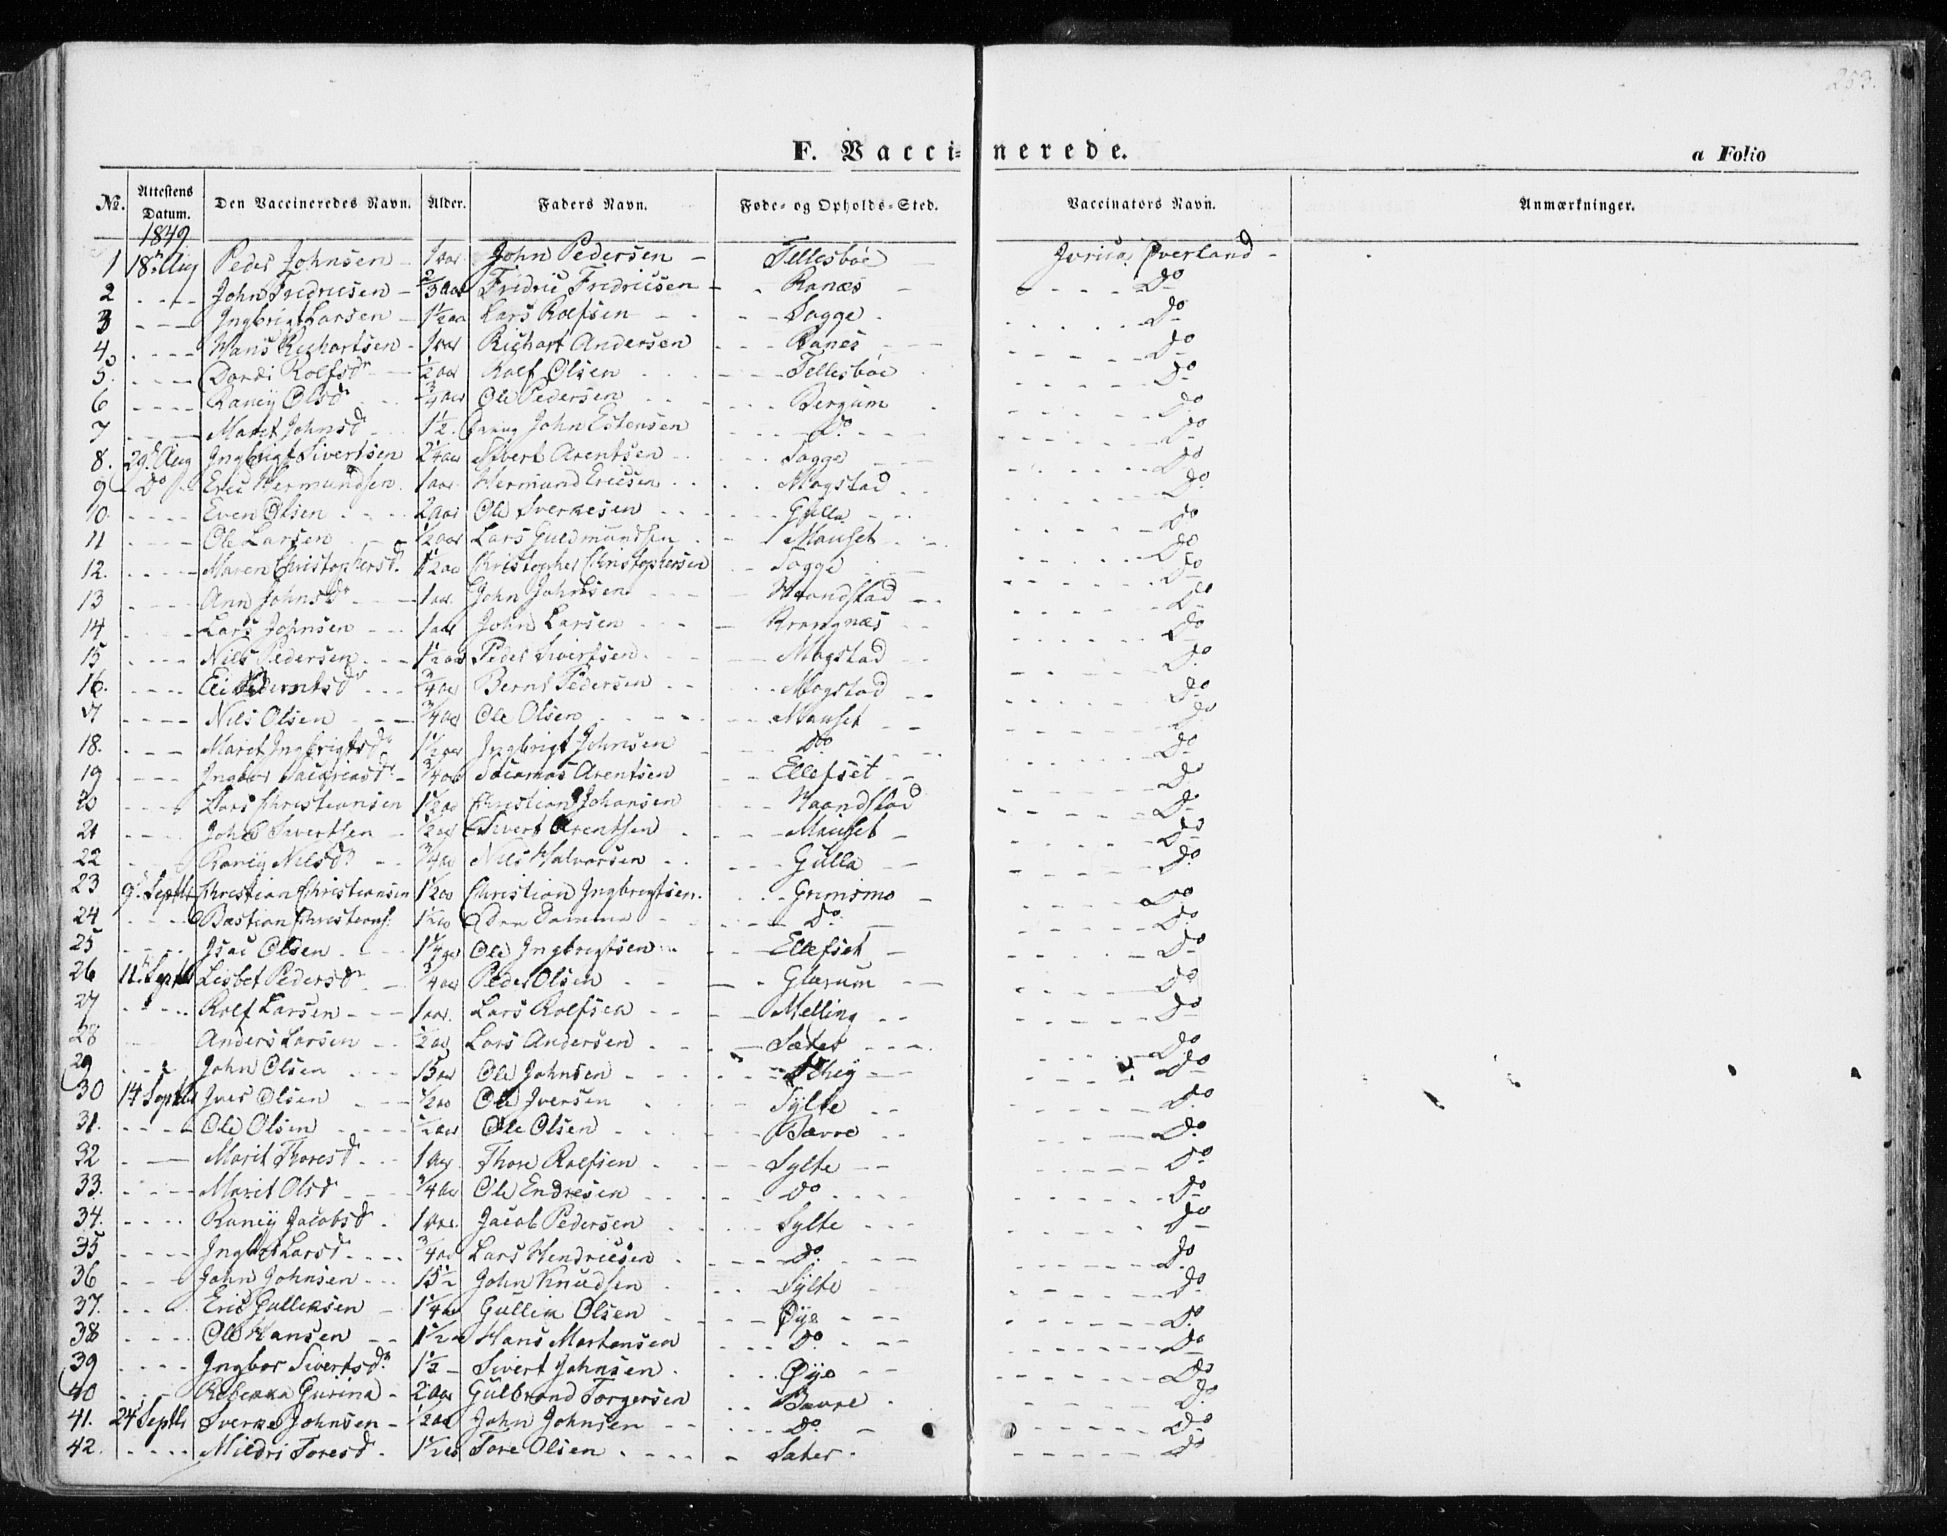 253.
F. Vaccinerede. a Folio
No. Attestens Datum. Den Vaccineredes Navn. Alder. Faders Navn. Føde- og Opholds-Sted. Vaccinators Navn. Anmærkninger.
1849
1 18 Aug Peder Johnsen 1 aar John Pedersen Tellesbøe Overland
2 John Fredricsen 2/3 aar Fridric Fridricsen Ranæs Do
3 Ingbrigt Larsen 1 1/2 aar Lars Rolfsen Sogge Do
4 Hans Richartsen 1 aar Richart Andersen Ranes Do
5. Dordi Rolfsdr 1/2 aar Rolf Olsen Tellesbøe Do
6 Raney Olsdr 3/4 aar Ole Pedersen Bergum Do
7 Marit Johnsd 1 1/2 John Estensen Do Do
8. 29 Aug Ingbrigt Sivertsen 2 1/4 aar Sivert Arentsen Sogge Do
9 Do Eric Hermundsen 1 aar Hermund Ericsen Mogstad Do
10. Even Olsen 2 aar Ole Sverkesen Gulla Do
11 Ole Larsen 1/2 aar Lars Guldmundsen Mauset Do
12. Maren Christophersd. 1 1/2 aar Christopher Christophersen Sogge Do
13 Ann Johnsdr 1 aar John Johnsen Haandstad Do
14 Lars Johnsen 1 aar John Larsen Krangnæs Do
15 Nils Pedersen 1 1/2 aar Peder Sivertsen Mogstad Do
16. 3/4 aar Bernt Pedersen Mogstad Do
17 Nils Olsen 3/4 aar Ole Olsen Mauset Do
18. Marit Ingbrigtsdr 1 1/2 aar Ingbrigt Johnsen Do Do
19 Ingbor 3/4 aar Arentsen Ellefset Do
20 Lars Christiansen 1 1/2 aar Christian Johansen Haandstad Do
21 John Sivertsen 1/2 aar Sivert Arentsen Mauset Do
22 Raney Nilsdr 3/4 aar Nils Halvorsen Gulla Do
23 9 Septb Christian Christiansen 1 1/2 aar Christian Ingbrigtsen Grimsmo Do
24 Bastian 1 1/2 aar Den Samme Do Do
25 Isac Olsen 1 1/4 aar Ole Ingbrigtsen Ellefset Do
26 Septb Lisbet Pedersdr 3/4 aar Peder Olsen Glærum Do
27 Rolf Larsen 1 aar Lars Rolfsen Melling Do
28 Anders Larsen 1/2 aar Lars Andersen Sæter Do
29 John Olsen 15 aar Ole Johnsen Do
30 14 Septb Iver Olsen 1/2 aar Ole Iversen Sylte Do
31. Ole Olsen 1/2 aar Ole Olsen Bævre Do
32 Marit Thoresd 1 aar Thore Rolfsen Sylte Do
33. Marit Olsd 3/4 aar Ole Endresen Do Do
34. Raney Jacobsd 1 aar Jacob Pedersen Sylte Do
35 Larsd 3/4 aar Lars Hendricsen Do Do
36 John Johnsen 15 1/2 John Knudsen Sylte Do
37. Eric Gulleksen 1 1/4 aar Gullik Olsen Øye Do
38 Ole Hansen 1 1/2 Hans Mortensen Do Do
39 Ingbor Sivertsdr 1 1/2 Sivert Johnsen Øye Do
40 Rebekka Gurina 2 aar Gulbrand Torgersen Bævre Do
41. 24 Septb Sverke Johnsen 1/2 aar John Johnsen Do Do
42. Mildri Toresd. 1 1/2 aar Tore Olsen Sæter Do